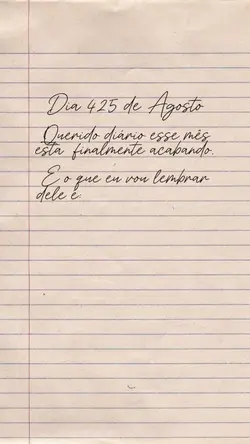 Dia 425 de Agosto
Querido diário esse mês
está finalmente acabando.
E o que eu vou lembrar
dele é: